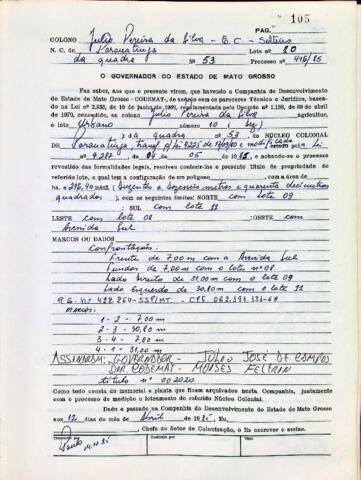 PAG. 105
COLONO Julio Pereira da Silva - E.C - Solteiro
N. C. de Paranatinga Lote n.º 10
da quadra N.º 53 Processo n.º 416/85
O GOVERNADOR DO ESTADO DE MATO GROSSO
Faz saber, aos que a presente virem, que havendo a Companhia de Desenvolvimento
do Estado de Mato Grosso - CODEMAT-, de acordo com os pareceres Técnico e Jurídico, basea-
do na Lei n.º 2.933, de 19 de junho de 1969, regulamentada pelo Decreto n.º 1.138, de 30 de abril
de 1970, concedido ao colono Julio Pereira da Silva agricultor,
o lote Urbano número 10 ( dez )
da quadra n.º 53 do NÚCLEO COLONIAL
DE Paranatinga, Transf p/ Lei 4225 de modificada Lei
n.º 4.387, de 04 de 05 de 1981, e achando-se o processo
revestido das formalidades legais, resolveu conferir-lhe o presente título de propriedade do
referido lote, o qual tem a configuração de um polígono com a área de
ha e 216,40 mts2 ( duzentos e dezeseis metros e quarenta decimetros
quadrados ) com os seguintes limites: NORTE com lote 09
; SUL com lote 11
LESTE com lote 08 ;OESTE com
Avenida Sul
MARCOS OU DADOS
Confrontações:
Frente de 7,00 m com a Avenida Sul
Fundos de 7,00 m com o lote nº 08
Lado Direito de 31,00 m com o lote 09
Lado Esquerdo de 30,80 m com o lote 11
R.G. nº 422.264-SSP/MT - CPF 062.191.131-68
MARCOS:
1 - 2 - 7,00 m
2 - 3 - 30,80 m
3 - 4 - 7,00 m
4 - 1 - 31,00 m
ASSINARAM: GOVERNADOR - JÚLIO JOSÉ DE CAMPOS
DIR. CODEMAT - MOISÉS FELTRIN
título nº 002020
Como tudo consta do memorial e planta que ficam arquivados nesta Companhia, juntamente
com o processo de medição e loteamento do referido Núcleo Colonial.
Dado e passado na Companhia de Desenvolvimento do Estado de Mato Grosso
aos 12 dias do mês de Abril de 1985. Eu,
, Chefe do Setor de Colonização, o fiz escrever e assino.